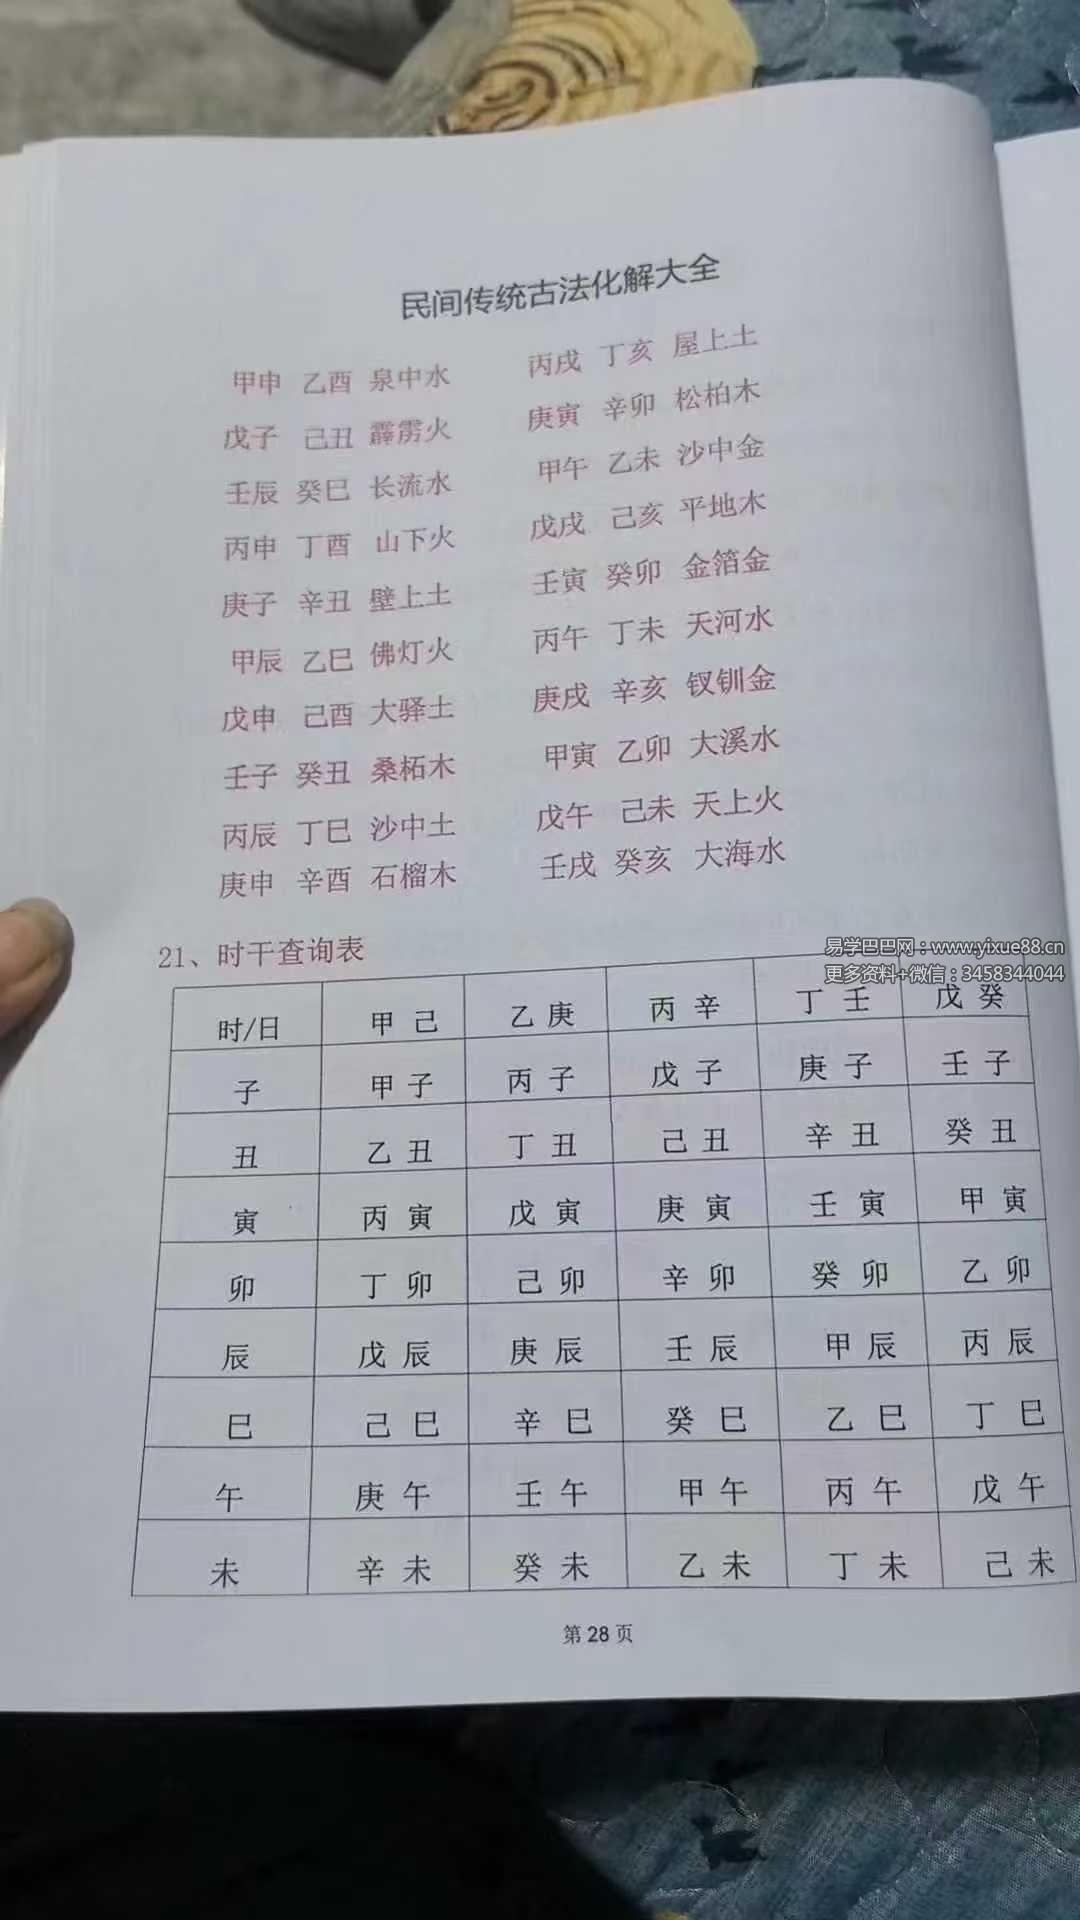 民间传统古法化解大全
甲申 乙酉 泉中水 丙戌 丁亥 屋上土
戊子 己丑 霹雳火 庚寅 辛卯 松柏木
壬辰 癸巳 长流水 甲午 乙未 沙中金
丙申 丁酉 山下火 戊戌 己亥 平地木
庚子 辛丑 壁上土 壬寅 癸卯 金箔金
甲辰 乙巳 佛灯火 丙午 丁未 天河水
戊申 己酉 大驿土 庚戌 辛亥 钗钏金
壬子 癸丑 桑柘木 甲寅 乙卯 大溪水
丙辰 丁巳 沙中土 戊午 己未 天上火
庚申 辛酉 石榴木 壬戌 癸亥 大海水
21、时干查询表
易学巴巴网：www.yixue88.cn
更多资料+微信：3458344044
时/日 甲己 乙庚 丙辛 丁壬 戊癸
子 甲子 丙子 戊子 庚子 壬子
丑 乙丑 丁丑 己丑 辛丑 癸丑
寅 丙寅 戊寅 庚寅 壬寅 甲寅
卯 丁卯 己卯 辛卯 癸卯 乙卯
辰 戊辰 庚辰 壬辰 甲辰 丙辰
巳 己巳 辛巳 癸巳 乙巳 丁巳
午 庚午 壬午 甲午 丙午 戊午
未 辛未 癸未 乙未 丁未 己未
第 28 页